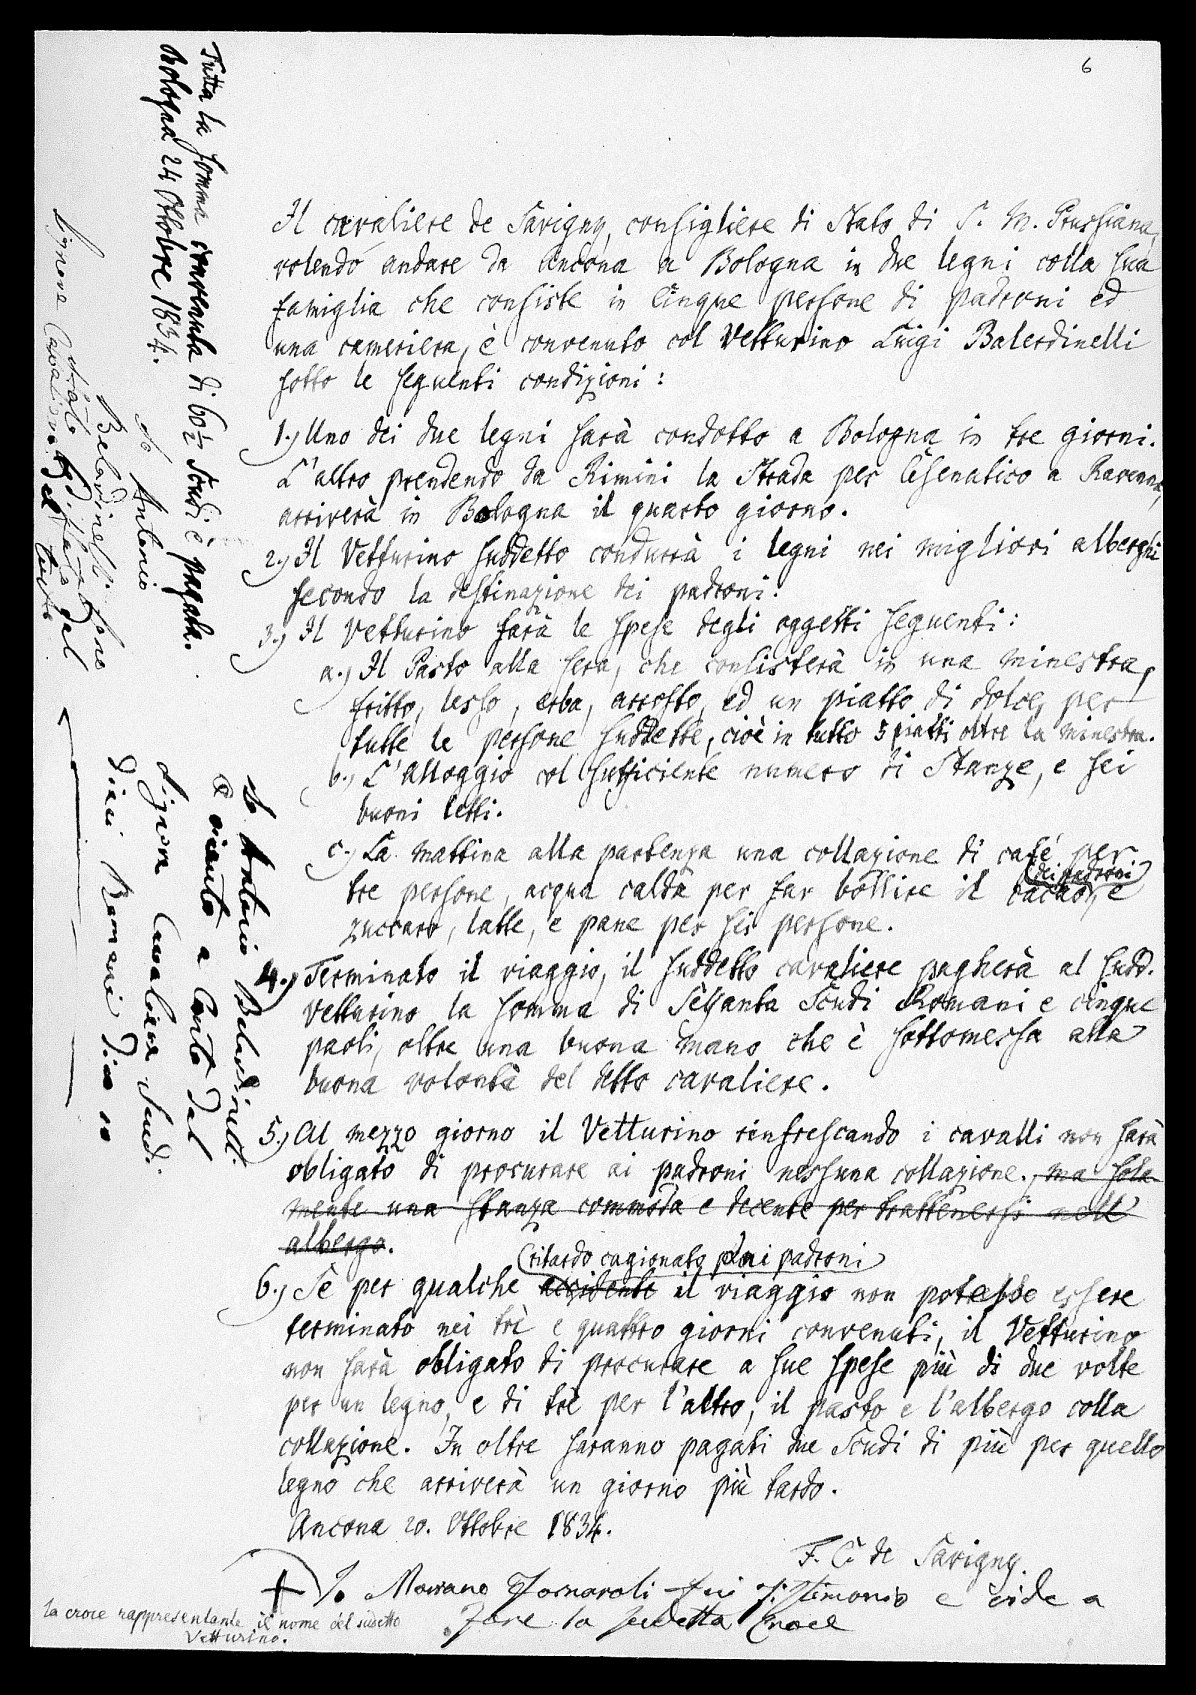 6
Il cavaliere de Savigny, consigliere di Stato di S. M. Prussiana,
volendo andare da Ancona a Bologna in due legni colla sua
famiglia che consiste in cinque persone di padroni ed
una cameriera, è convenuto col Vetturino Luigi Balerdinelli
sotto le seguenti condizioni:
1.) Uno dei due legni sarà condotto a Bologna in tre giorni.
L'altro prendendo da Rimini la Strada per Cesenatico a Ravenna,
arriverà in Bologna il quarto giorno.
2.) Il Vetturino suddetto condurrà i legni nei migliori alberghi
secondo la destinazione dei padroni.
3.) Il Vetturino farà le spese degli oggetti seguenti:
a.) Il Pasto alla sera, che consisterà in una minestra,
fritto, lesso, erba, arrosto, ed un piatto di dolce, per
tutte le persone suddette, cioè in tutto 5 piatti oltre la minestra.
b.) L'alloggio col sufficiente numero di Stanze, e sei
buoni letti.
c.) La mattina alla partenza una collazione di café per
tre persone, acqua calda per far bollire il cacao,
(dei padroni)
e
zuccaro, latte, e pane per sei persone.
4.) Terminato il viaggio, il suddetto cavaliere pagherà al sudd.
Vetturino la somma di Sessanta Scudi Romani e cinque
paoli, oltre una buona mano che è sottomessa alla
buona volontà del detto cavaliere.
5.) Al mezzo giorno il Vetturino rinfrescando i cavalli non sarà
obligato di procurare ai padroni nessuna collazione. ma sola-
mente una stanza commoda e decente per trattenersi nell'
albergo.
(ritardo cagionato dai padroni)
6.) Se per qualche accidente il viaggio non potesse essere
terminato nei trè e quattro giorni convenuti, il Vetturino
non sarà obligato di procurare a sue spese più di due volte
per un legno, e di trè per l'altro, il pasto e l'albergo colla
collazione. In oltre saranno pagati due Scudi di più per quello
legno che arriverà un giorno più tardo.
Ancona 20. Ottobre 1834.
F. C. de Savigny.
+ Io Mariano Fornaroli fui testimonio e vide a
fare la sudetta Croce
la croce rappresentante il nome del sudetto
Vetturino.
Tutta la somma convenuta di 60½ Scudi è pagata.
Bologna 24 Ottobre 1834.
Io Antonio
Belardinelli sono
stato di sfato dal
Signore Cavaliere del tuto
Io Antonio Belardinelli
o riceuto a Conto dal
Signor Cavaliere Scudi
dieci Romani Dico 10